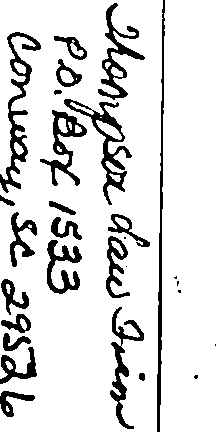 Thompson Law Firm
P.O. Box 1533
Conway, SC 29526